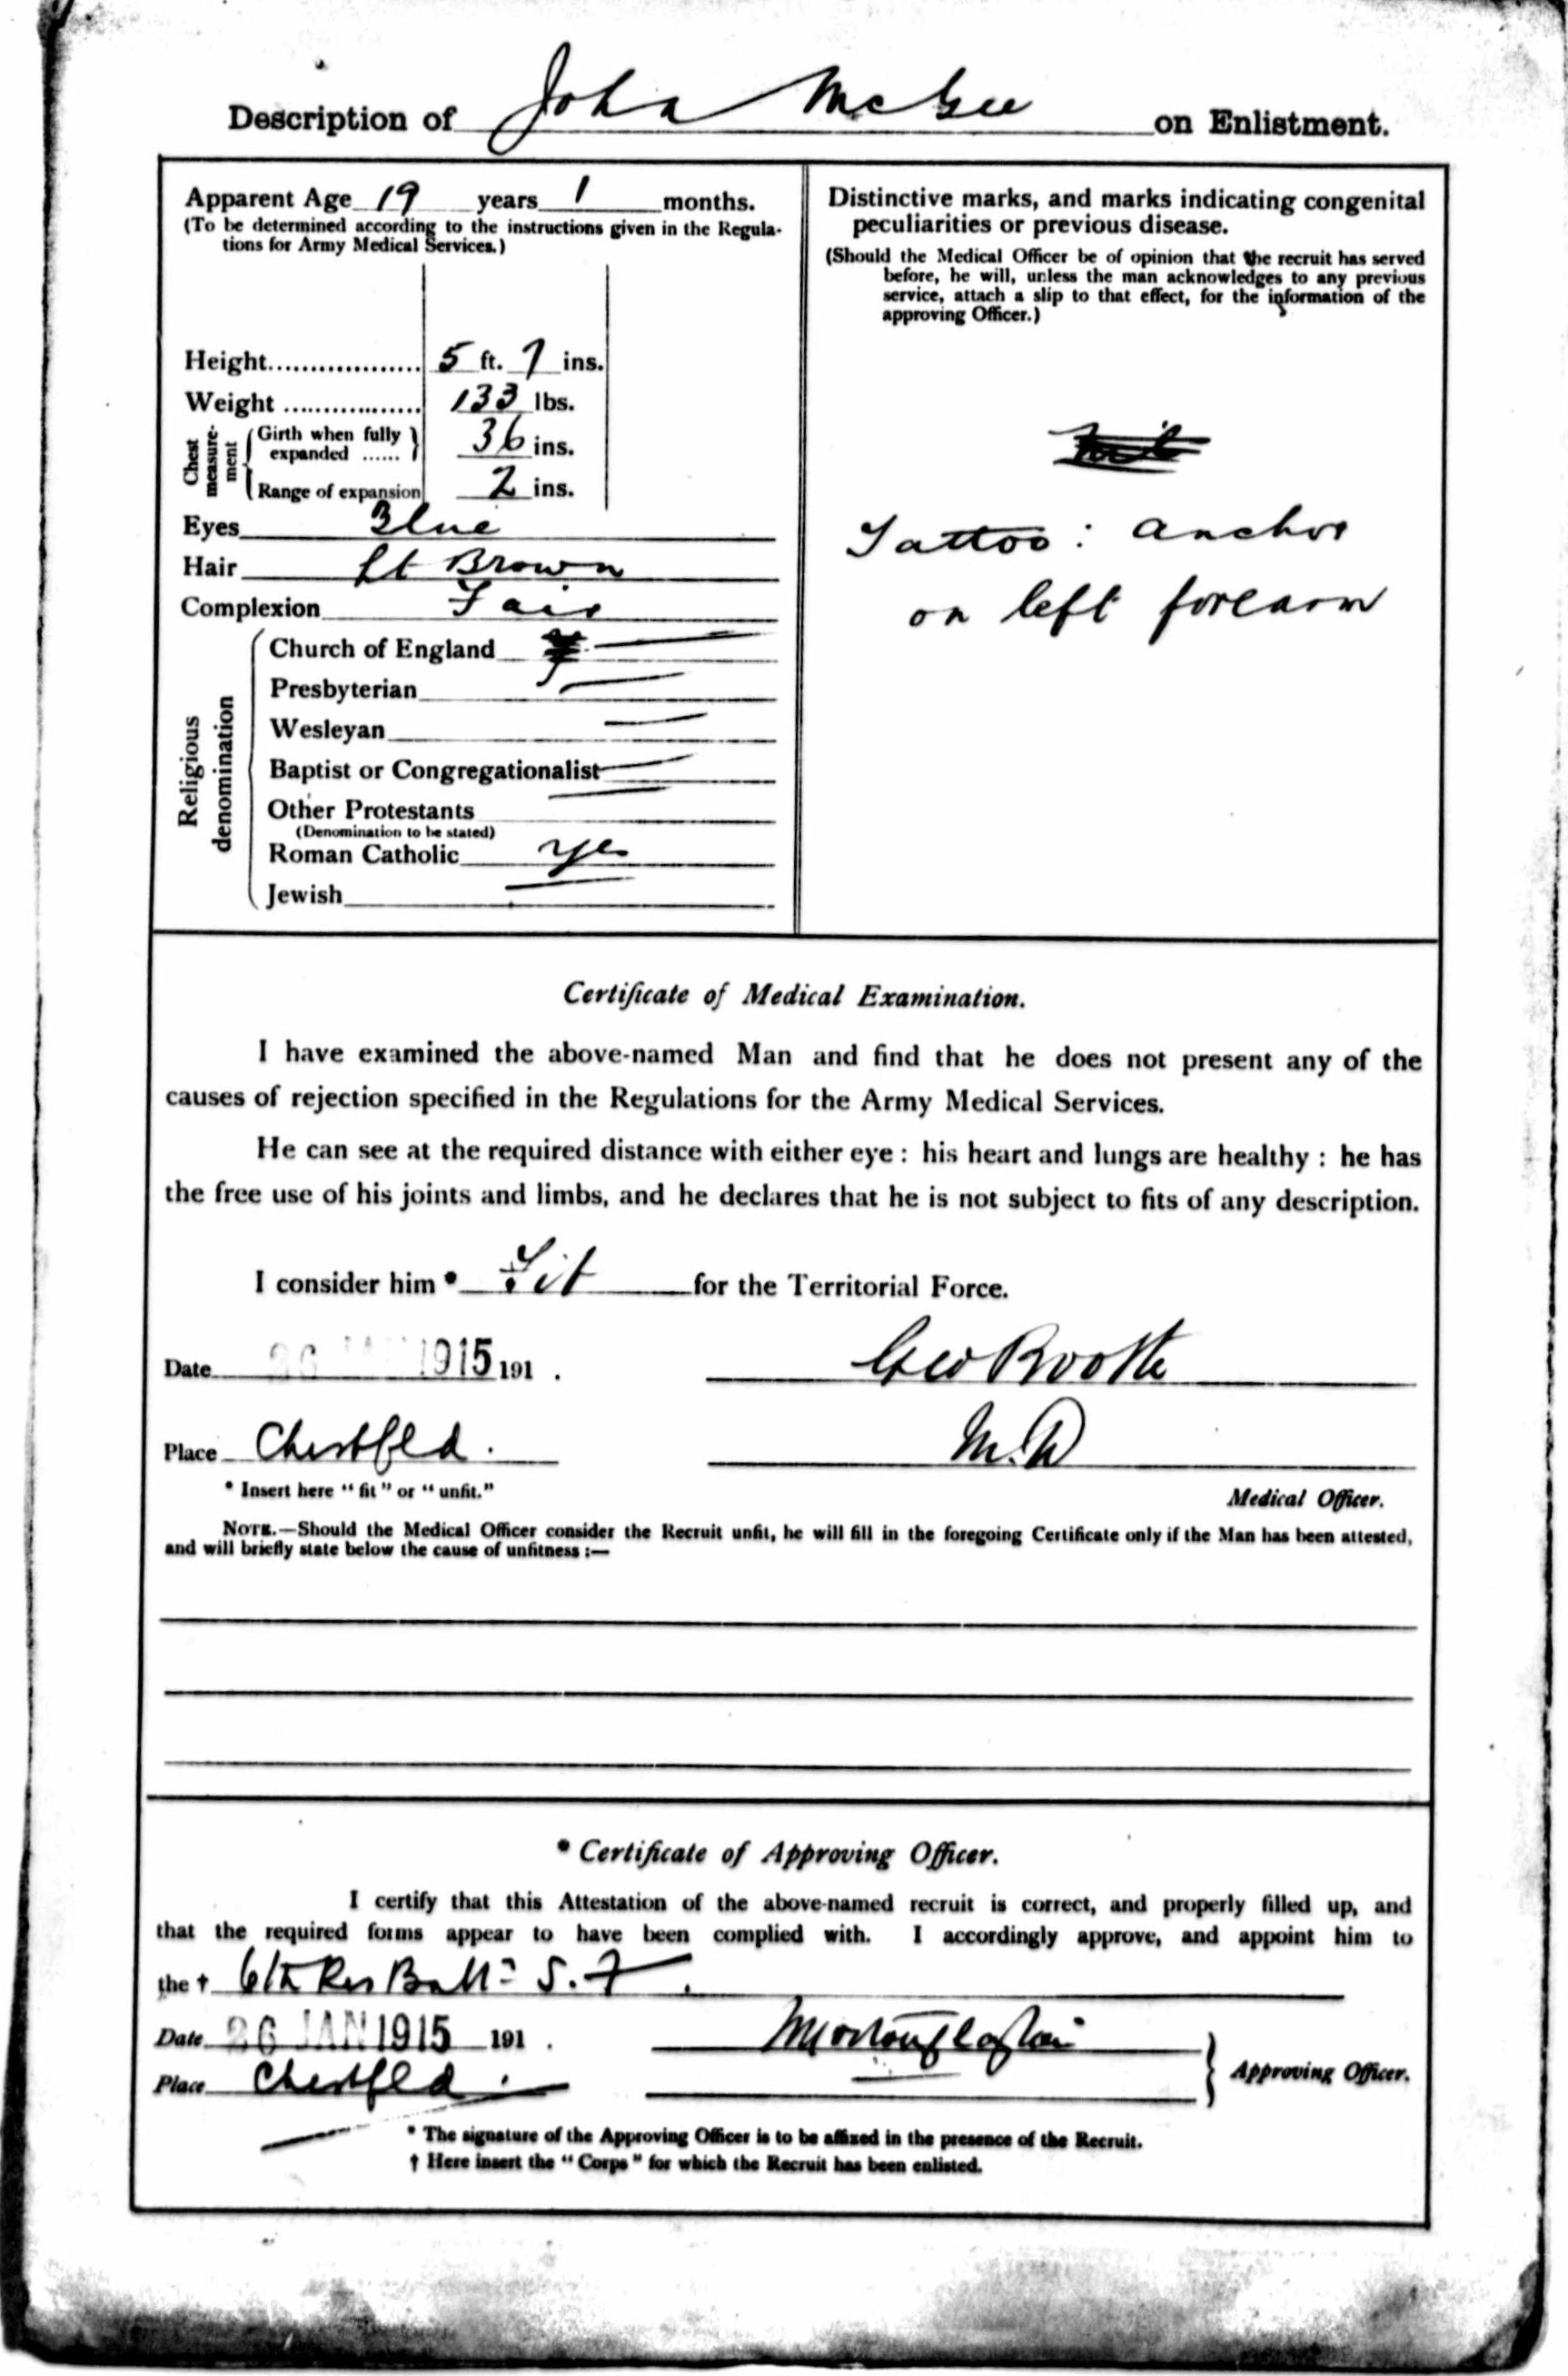 Description of John McGee on Enlistment.
Apparent Age 19 years 1 months.
(To be determined according to the instructions given in the Regula-
tions for Army Medical Services.)
Height.................. 5 ft. 7 ins.
Weight ................. 133 lbs.
Chest measure-ment
Girth when fully expanded ...... 36 ins.
Range of expansion 2 ins.
Eyes Blue
Hair Lt Brown
Complexion Fair
Religious denomination
Church of England
Presbyterian
Wesleyan
Baptist or Congregationalist
Other Protestants
(Denomination to be stated)
Roman Catholic yes
Jewish
Distinctive marks, and marks indicating congenital
peculiarities or previous disease.
(Should the Medical Officer be of opinion that the recruit has served
before, he will, unless the man acknowledges to any previous
service, attach a slip to that effect, for the information of the
approving Officer.)
Tattoo : anchor
on left forearm
Certificate of Medical Examination.
I have examined the above-named Man and find that he does not present any of the
causes of rejection specified in the Regulations for the Army Medical Services.
He can see at the required distance with either eye : his heart and lungs are healthy : he has
the free use of his joints and limbs, and he declares that he is not subject to fits of any description.
I consider him * Fit for the Territorial Force.
Date 26 JAN 1915 191 . Geo Booth
Place Chestfld. M.D
* Insert here "fit" or "unfit."
Medical Officer.
NOTE.—Should the Medical Officer consider the Recruit unfit, he will fill in the foregoing Certificate only if the Man has been attested,
and will briefly state below the cause of unfitness :—
* Certificate of Approving Officer.
I certify that this Attestation of the above-named recruit is correct, and properly filled up, and
that the required forms appear to have been complied with. I accordingly approve, and appoint him to
the † 6th Res Battn S.F.
Date 26 JAN 1915 191 .
Place Chestfld. Approving Officer.
* The signature of the Approving Officer is to be affixed in the presence of the Recruit.
† Here insert the "Corps" for which the Recruit has been enlisted.